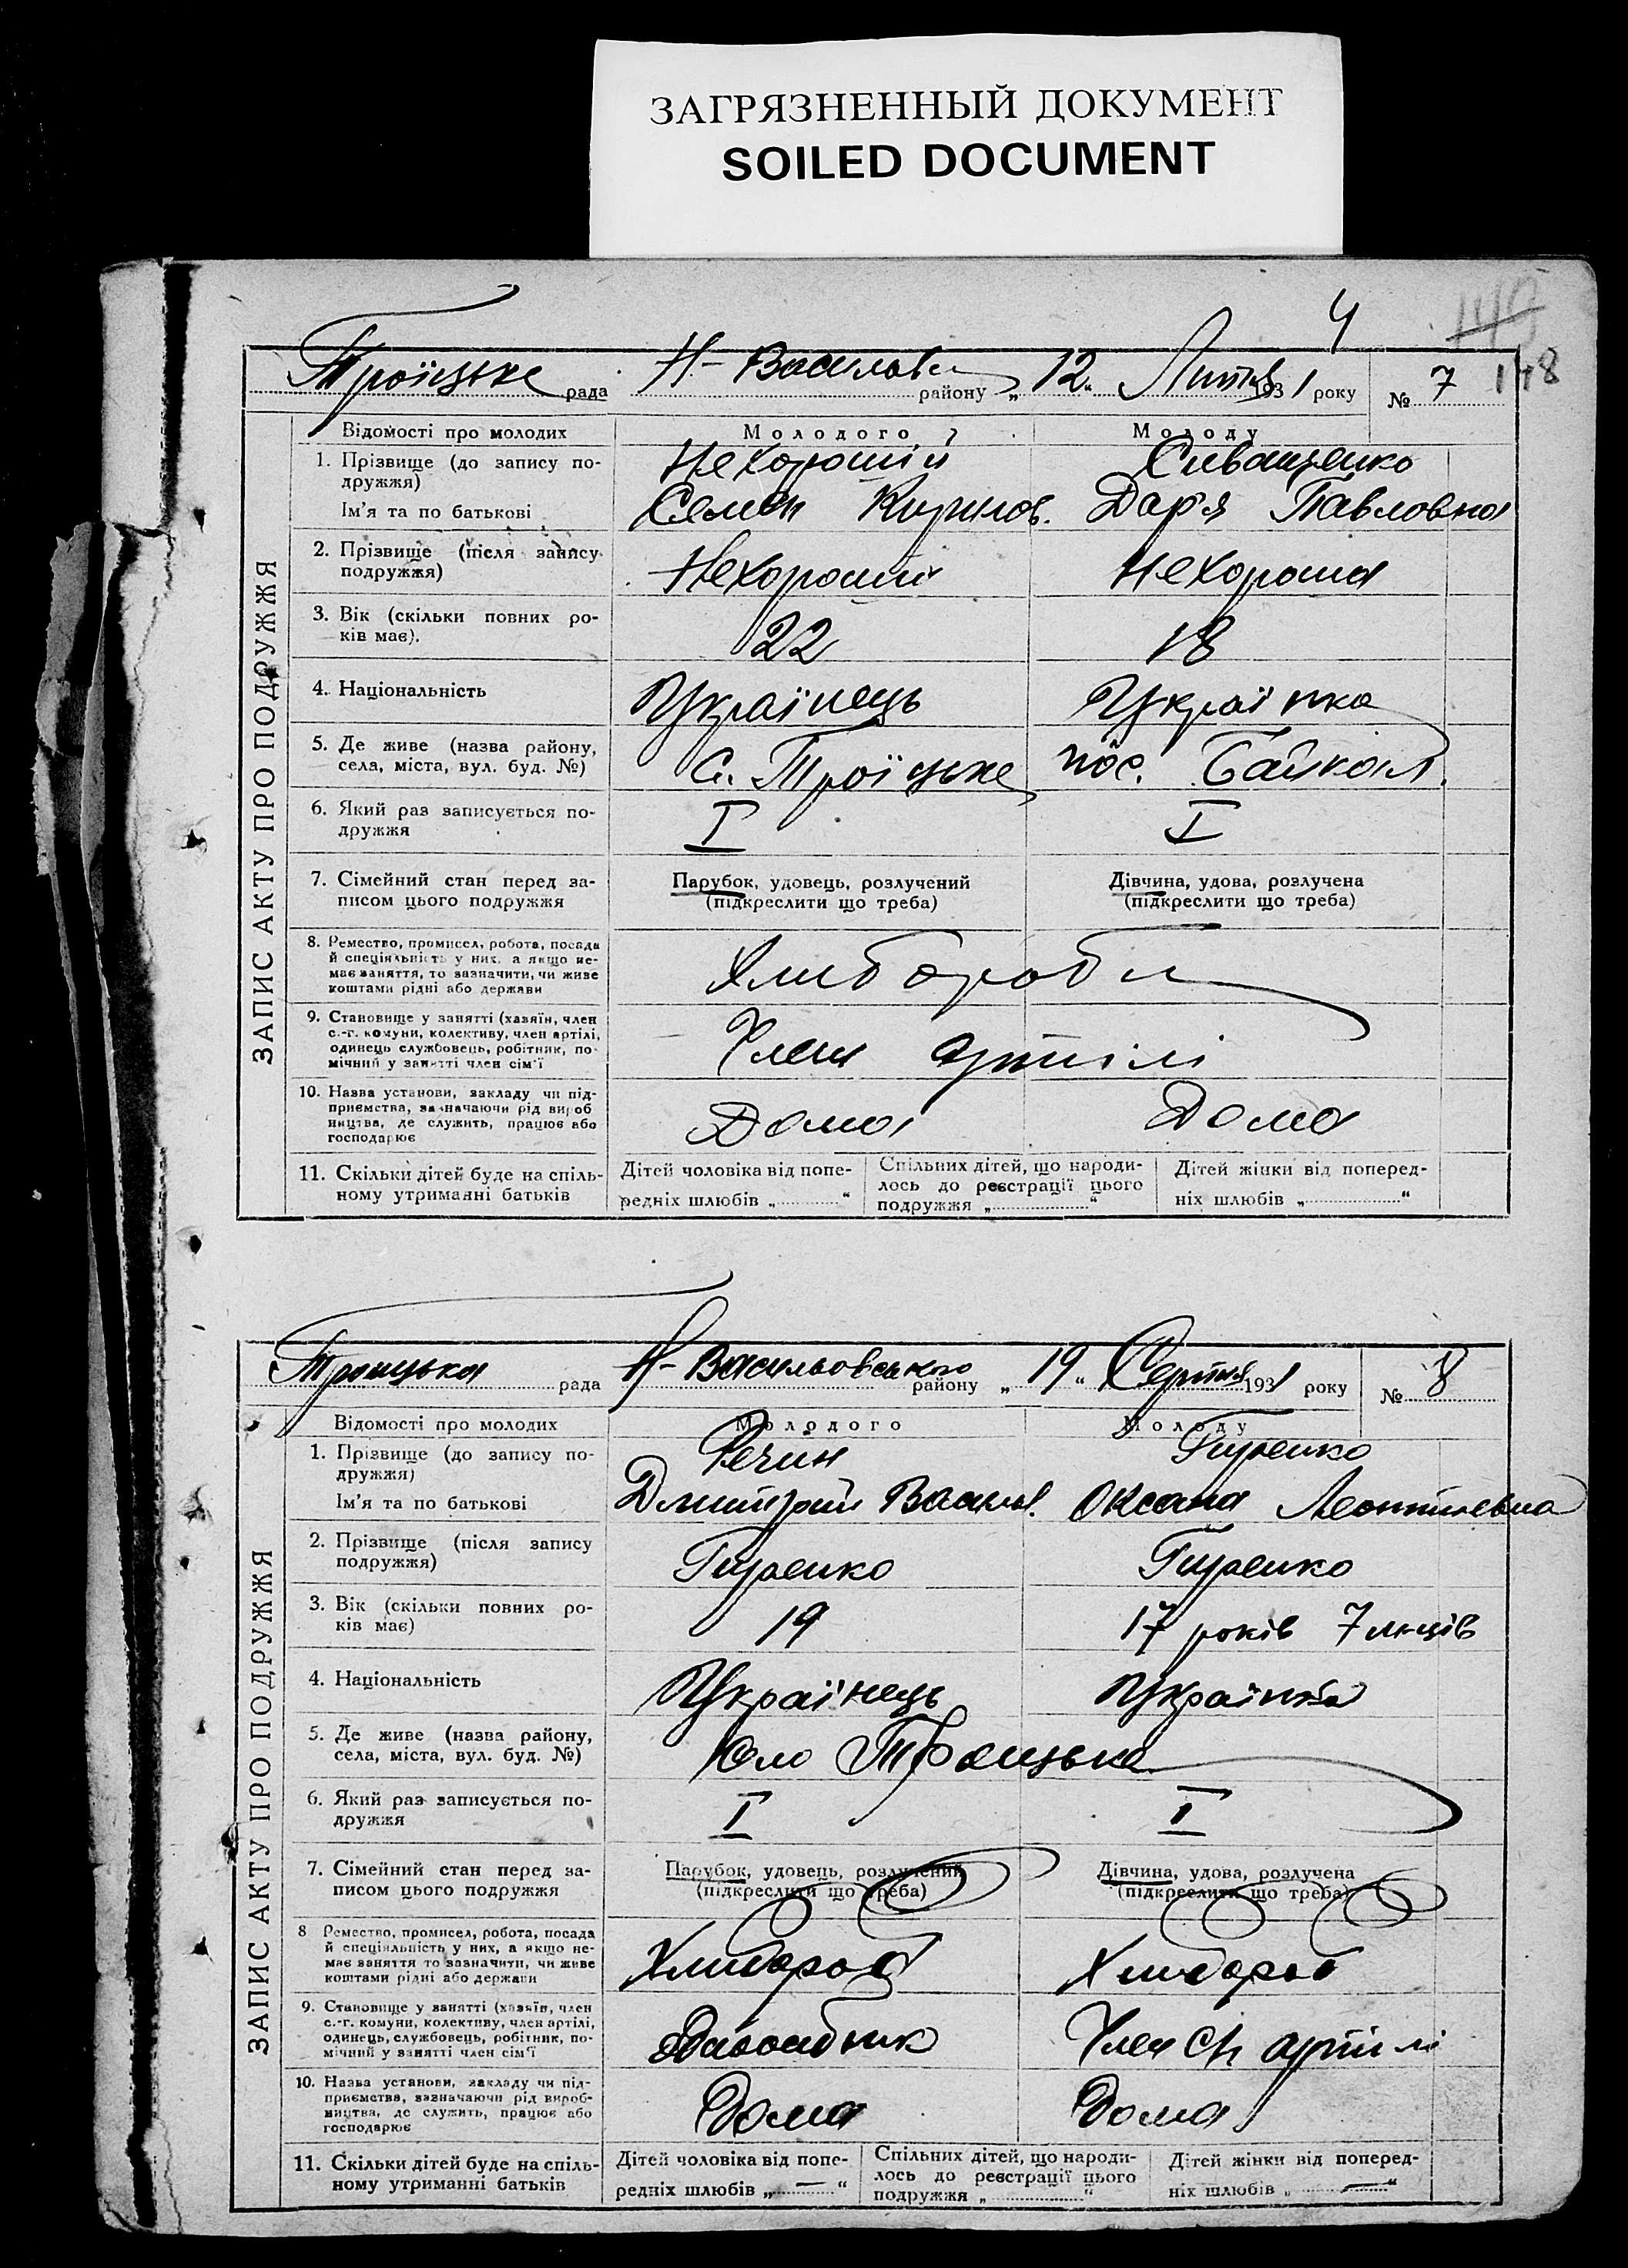 ЗАГРЯЗНЕННЫЙ ДОКУМЕНТ
SOILED DOCUMENT
4
149
148
Троїцьке рада Н-Василовск району „12" Липня 1931 року № 7
ЗАПИС АКТУ ПРО ПОДРУЖЖЯ
Відомості про молодих Молодого Молоду
1. Прізвище (до запису по- Нехороший Сиващенко
дружжя)
Ім'я та по батькові Семен Кирилов. Дар'я Павловна
2. Прізвище (після запису Нехороший Нехороша
подружжя)
3. Вік (скільки повних ро- 22 18
ків має).
4. Національність Українець Українка
5. Де живе (назва району, с. Троїцьке пос. Байкал.
села, міста, вул. буд. №)
6. Який раз записується по- I I
дружжя
7. Сімейний стан перед за- Парубок, удовець, розлучений Дівчина, удова, розлучена
писом цього подружжя (підкреслити що треба) (підкреслити що треба)
8. Ремество, промисел, робота, посада Хлибороби
й спеціяльність у них, а якщо не-
має заняття, то зазначити, чи живе
коштами рідні або держави
9. Становище у занятті (хазяїн, член Член артілі
с.-г. комуни, колективу, член артілі,
одинець службовець, робітник, по-
мічний у занятті член сім'ї
10. Назва установи, закладу чи під- Дома Дома
приємства, зазначаючи рід вироб
ництва, де служить, працює або
господарює
11. Скільки дітей буде на спіль- Дітей чоловіка від попе- Спільних дітей, що народи- Дітей жінки від поперед-
ному утриманні батьків редніх шлюбів „ " лось до реєстрації цього ніх шлюбів „ "
подружжя „ "
Троицька рада Н-Васильовського району „19" Серпня 1931 року № 8
ЗАПИС АКТУ ПРО ПОДРУЖЖЯ
Відомості про молодих Молодого Молоду
1. Прізвище (до запису по- Речин Гиренко
дружжя)
Ім'я та по батькові Дмитрий Васил. Оксана Леонтиевна
2. Прізвище (після запису Гиренко Гиренко
подружжя)
3. Вік (скільки повних ро- 19 17 років 7 м-ців
ків має)
4. Національність Українець Українка
5. Де живе (назва району, село Троицьке
села, міста, вул. буд. №)
6. Який раз записується по- I I
дружжя
7. Сімейний стан перед за- Парубок, удовець, розлучений Дівчина, удова, розлучена
писом цього подружжя (підкреслити що треба) (підкреслити що треба)
8 Ремество, промисел, робота, посада Хлибороб Хлибороб
й спеціяльність у них, а якщо не-
має заняття то зазначити, чи живе
коштами рідні або держави
9. Становище у занятті (хазяїн, член Член с/г артілі
с.-г. комуни, колективу, член артілі,
одинець, службовець, робітник, по-
мічний у занятті член сім'ї
10. Назва установи, закладу чи під- Дома Дома
приємства, зазначаючи рід вироб-
ництва, де служить, працює або
господарює
11. Скільки дітей буде на спіль- Дітей чоловіка від попе- Спільних дітей, що народи- Дітей жінки від поперед-
ному утриманні батьків редніх шлюбів „ — " лось до реєстрації цього ніх шлюбів „ — "
подружжя „ "